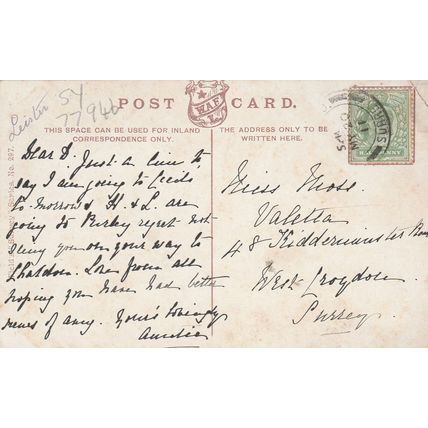 Leister
SY
77946
POST CARD.
W.A.F.
L
THIS SPACE CAN BE USED FOR INLAND
CORRESPONDENCE ONLY.
THE ADDRESS ONLY TO BE
WRITTEN HERE.
Series No. 297.
Dear D. Just a line to
say I am going to Leeds
to-morrow & H. & L. are
going to regret not
seeing you on your way to
Love from all
hoping you have had better
news of Amy. Yours lovingly
Auntie
Miss Moss.
Valetta
48 Kidderminster
West Croydon
Surrey.